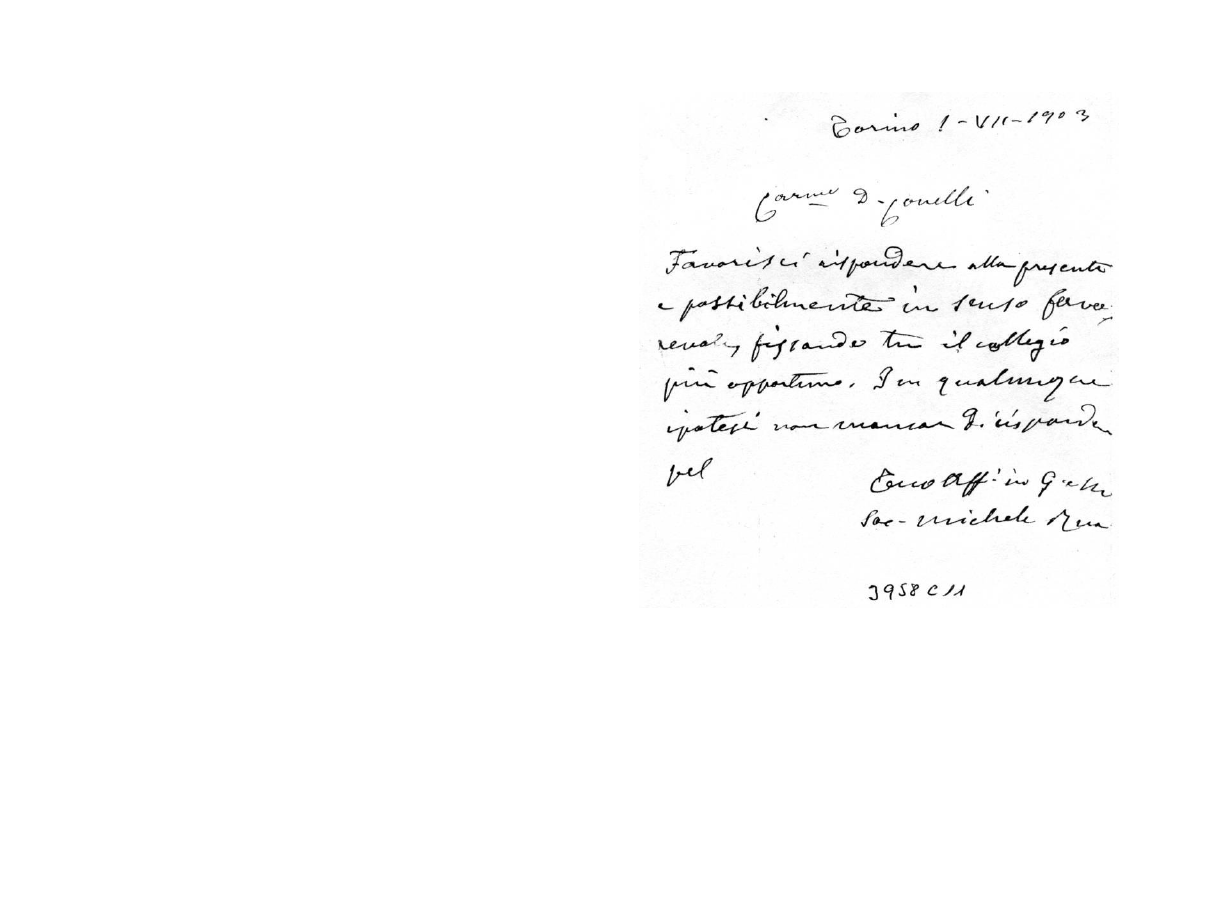 Torino 1-VII-1903
Carme D. Conelli
Favorisci rispondere alla presente
e possibilmente in senso favo
revole, fissando tu il collegio
più opportuno. In qualunque
ipotesi non mancar di risponder
pel
Tuo Aff. in G. e M.
Sac. Michele Rua
3958 C 11